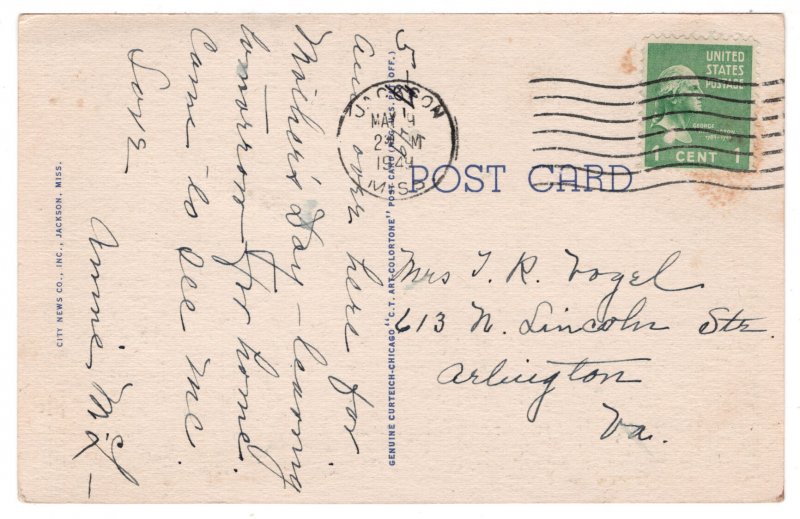 5-7-49
Am over here for
Mother's Day - leaving
tomorrow for home.
Come to see me
Love
Annie Mc
POST CARD
JACKSON
MAY 9
1949
MISS
UNITED
STATES
POSTAGE
1 CENT 1
Mrs T. R. Vogel
613 N. Lincoln Str.
Arlington
Va.
GENUINE CURTEICH-CHICAGO "C.T. ART-COLORTONE" POST CARD (REG. U.S. PAT. OFF.)
CITY NEWS CO., INC., JACKSON, MISS.